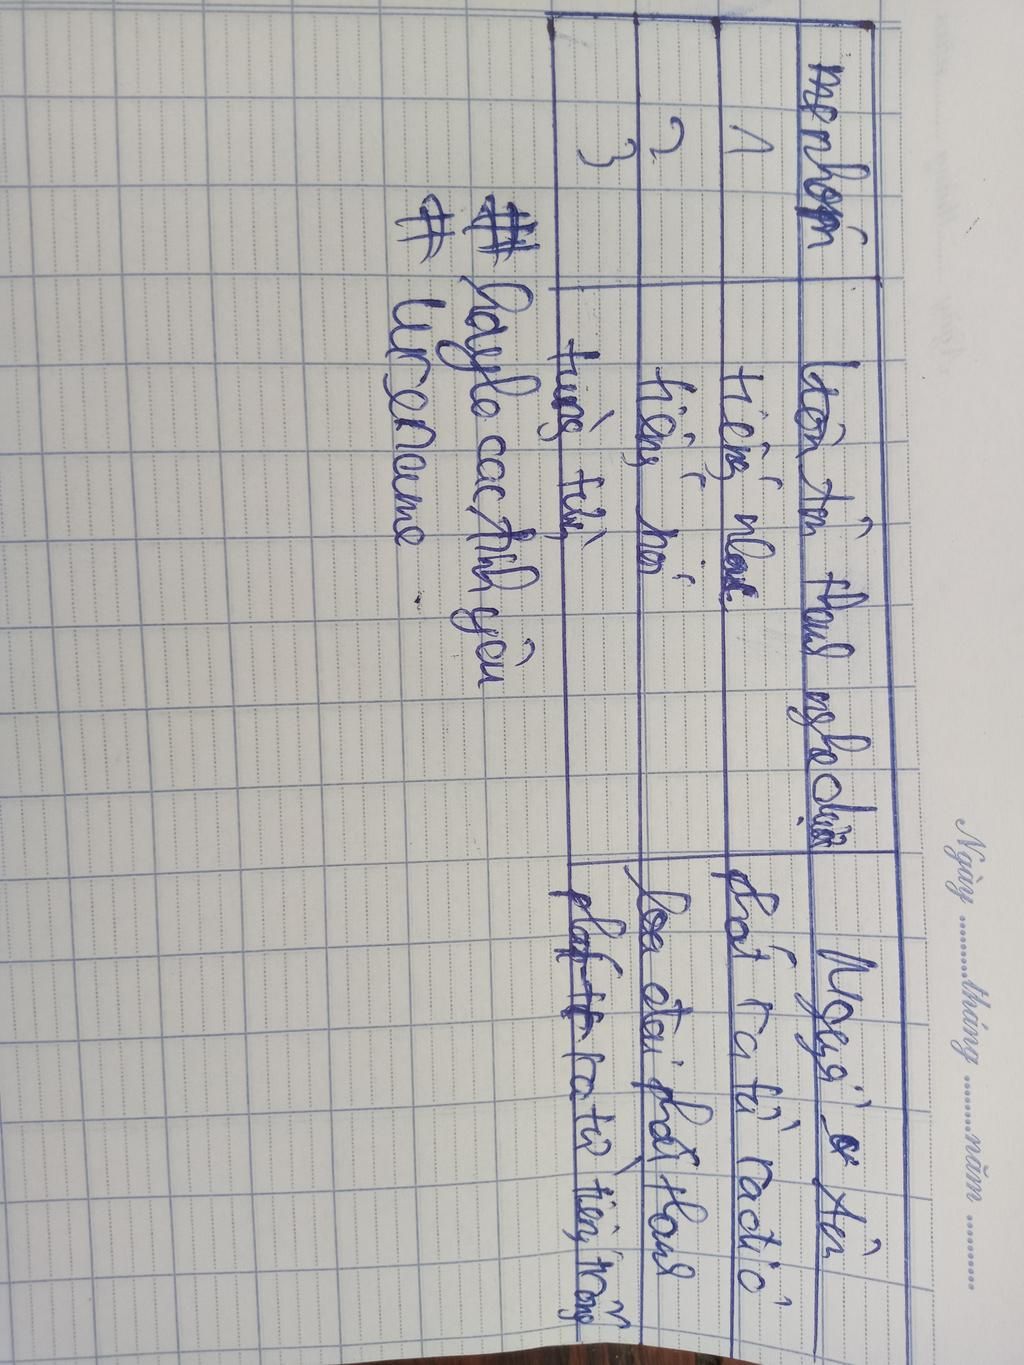 Ngày ......... tháng ......... năm .........
mẹ nhóm Uôn tôn thanh nghe được Nguồn âm
1 tiếng nhạc phát ra từ radió
2 tiếng nói loa đài phát thanh
3 tùng tùng phát ra từ tiếng trống
# hayla các tình yêu
# Urename